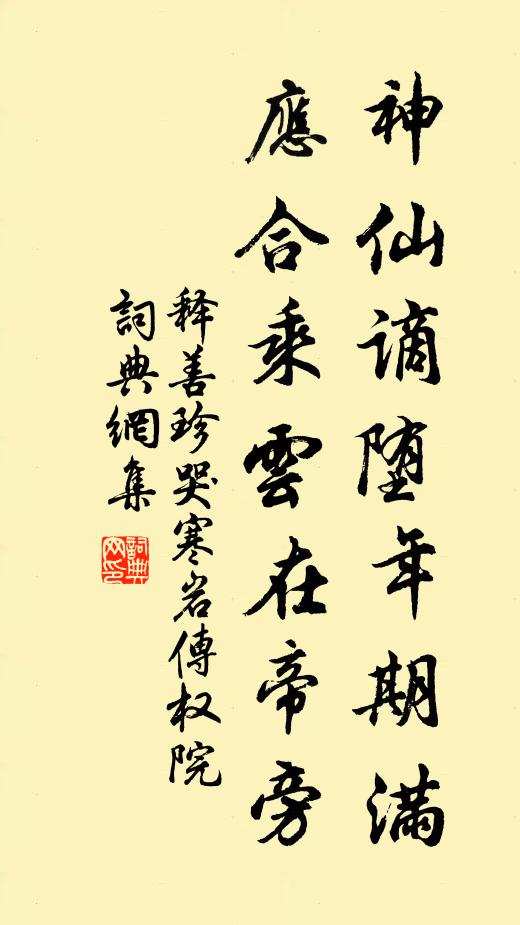 神仙谪堕年期满
應合乘雲在帝旁
释善珍哭寒岩傅权院
詞典網集
詞典
网印